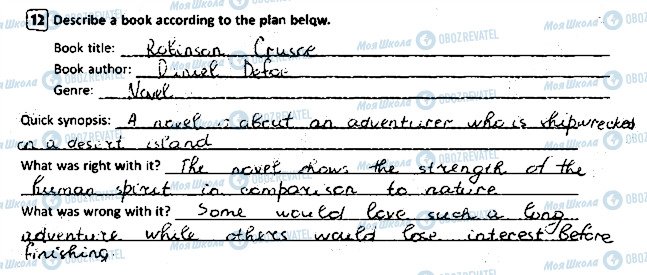 12 Describe a book according to the plan below.
Book title: Robinson Crusoe
Book author: Daniel Defoe
Genre: Novel
Quick synopsis: A novel is about an adventurer who is shipwrecked
on a desert island
What was right with it? The novel shows the strength of the
human spirit in comparison to nature
What was wrong with it? Some would love such a long
adventure while others would lose interest before
finishing.